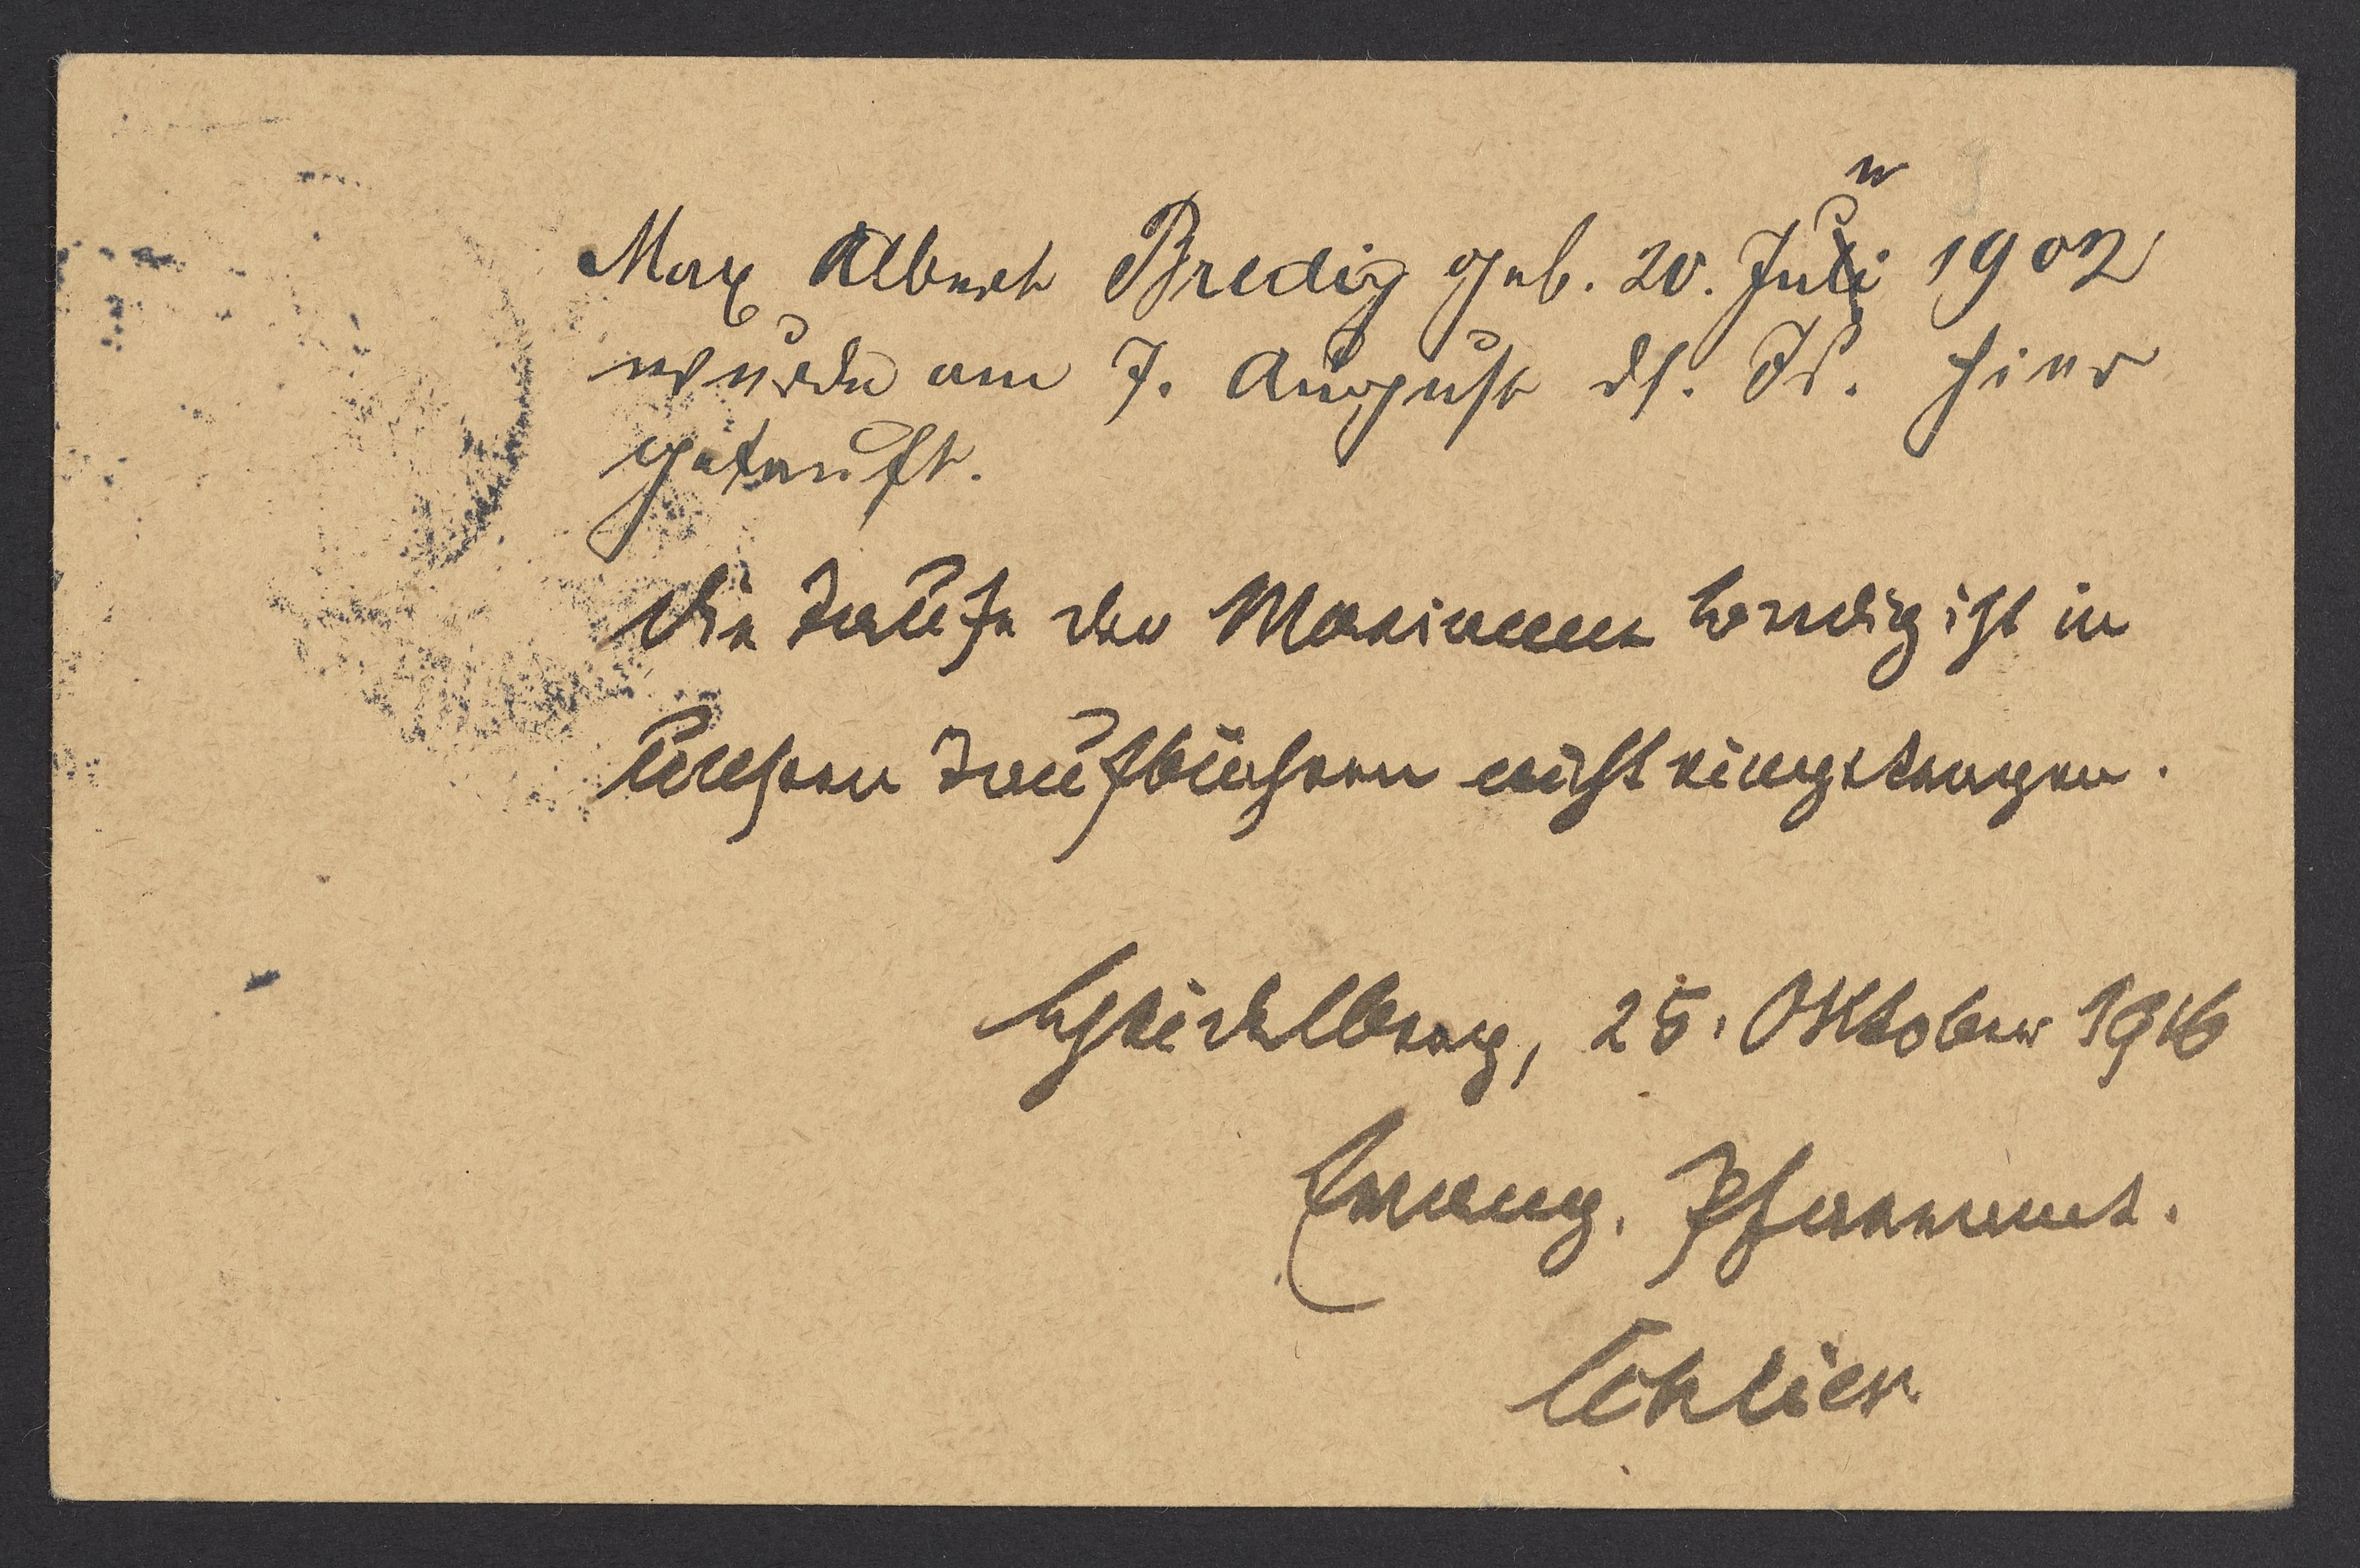 Max Albert Bredig geb. 20. Juni 1902
wurde am 7. August ds. Js. hier
getauft.
Die Taufe der Marianne Bredig ist in
unseren Taufbüchern nicht eingetragen.
Heidelberg, 25. Oktober 1916
Evang. Pfarramt.